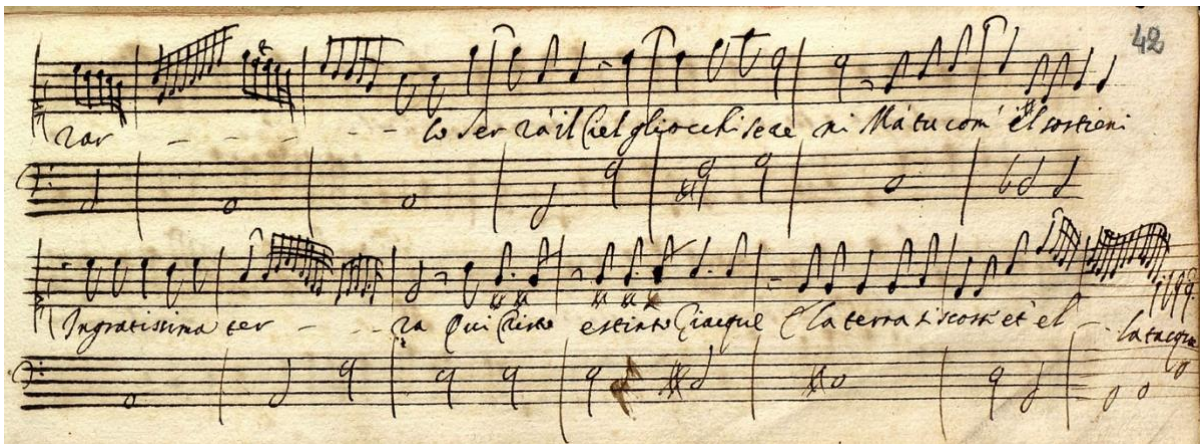 42
rar - - - - - lo Serrà il Ciel gli occhi sereni Mà tu com' el sostieni
Ingratissima ter - - - ra Qui Christo estinto Giacque E la terra si scosse et el - la tacque